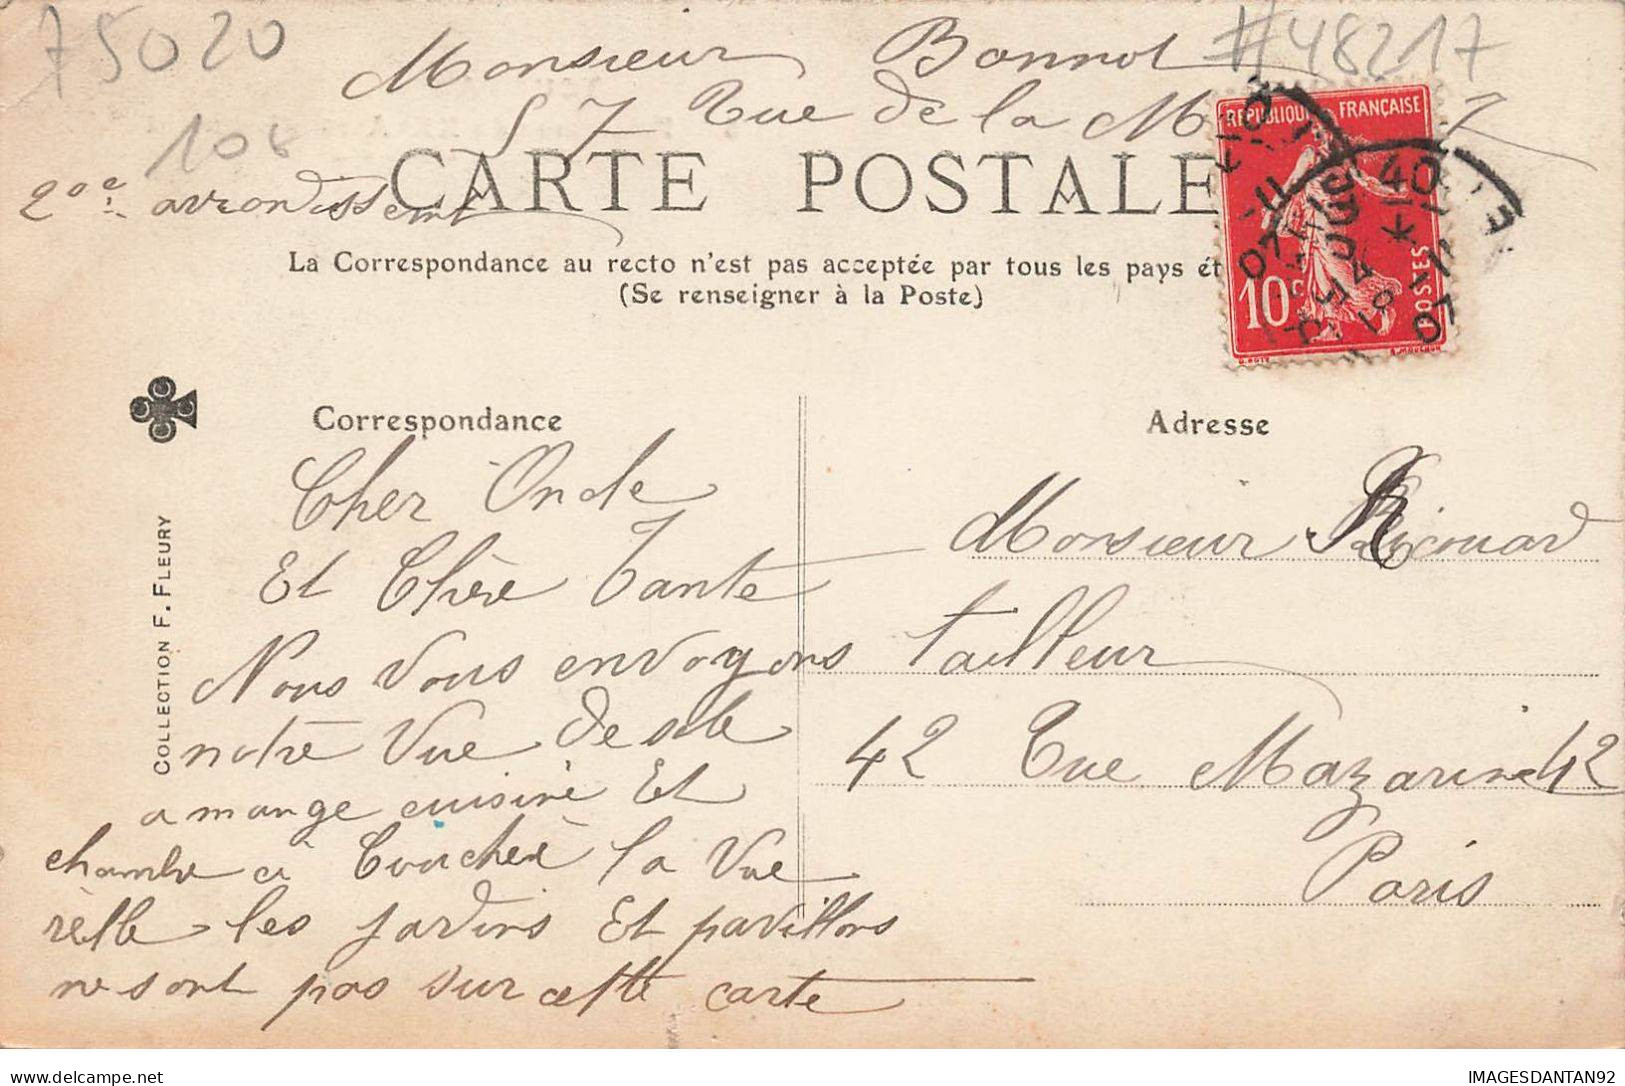 75020
#48217
Monsieur Bonnot
57 rue de la M
10f
20e arrondissement
CARTE POSTALE
La Correspondance au recto n'est pas acceptée par tous les pays ét
(Se renseigner à la Poste)
REPUBLIQUE FRANÇAISE
10c
POSTES
Correspondance
Adresse
COLLECTION F. FLEURY
Cher Oncle
Et Chère Tante
Nous Vous envoyons
notre Vue de sale
a mange cuisine Et
chambre a Couchere la Vue
relle les jardins Et pavillons
ne sont pas sur cette carte
Monsieur Ricouard
tailleur
42 rue Mazarine 42
Paris
IMAGESDANTAN92